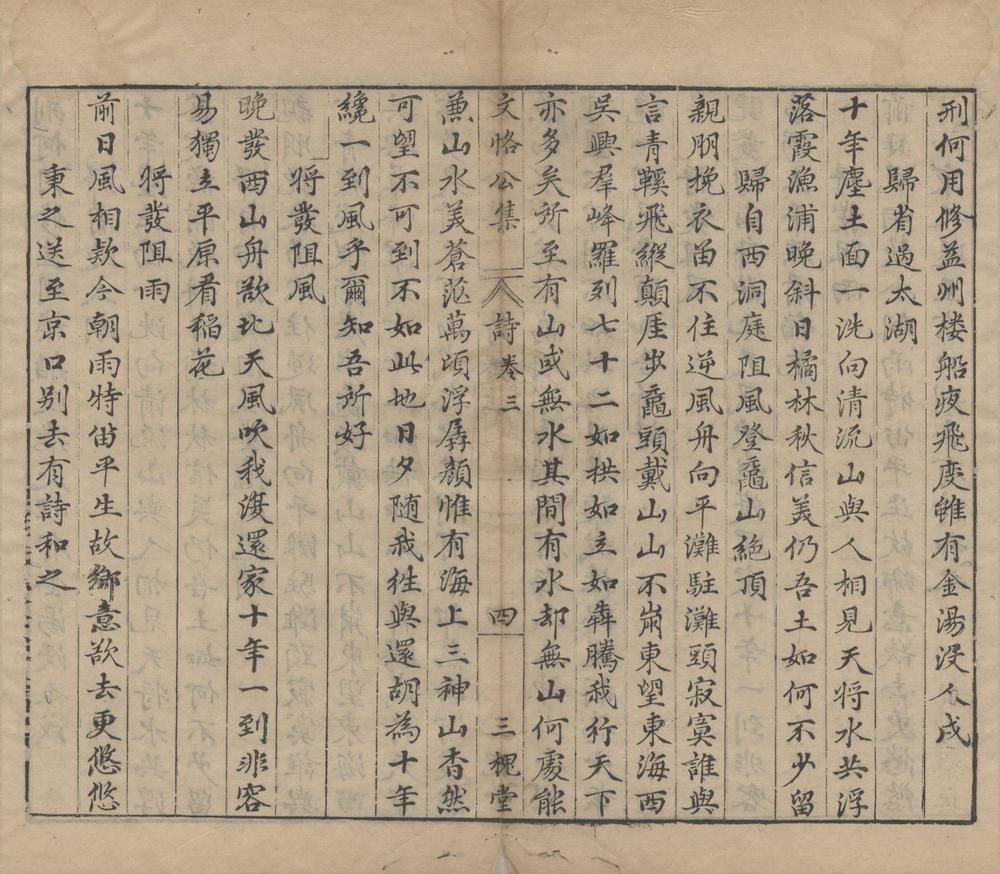 刑何用修益州楼船夜飛度雖有金湯没人戍
歸省過太湖
十年塵土面一洗向清流山與人相見天将水共浮
落霞漁浦晚斜日橘林秋信美仍吾土如何不少留
歸自西洞庭阻風登黿山絶頂
親朋挽衣畱不住逆風舟向平灘駐灘頭寂寞誰與
言青鞵飛縱顛厓步黿頭戴山山不崩東望東海西
吳興羣峰羅列七十二如拱如立如犇騰我行天下
亦多矣所至有山或無水其間有水却無山何處能
文恪公集 詩卷三 四 三槐堂
兼山水美蒼茫萬頃浮孱顔惟有海上三神山杳然
可望不可到不如此地日夕随我徃與還胡為十年
纔一到風乎爾知吾所好
将發阻風
晚發西山舟欲北天風吹我渡還家十年一到非容
易獨立平原看稲花
将發阻雨
前日風相欵今朝雨特畱平生故鄉意欲去更悠悠
秉之送至京口别去有詩和之